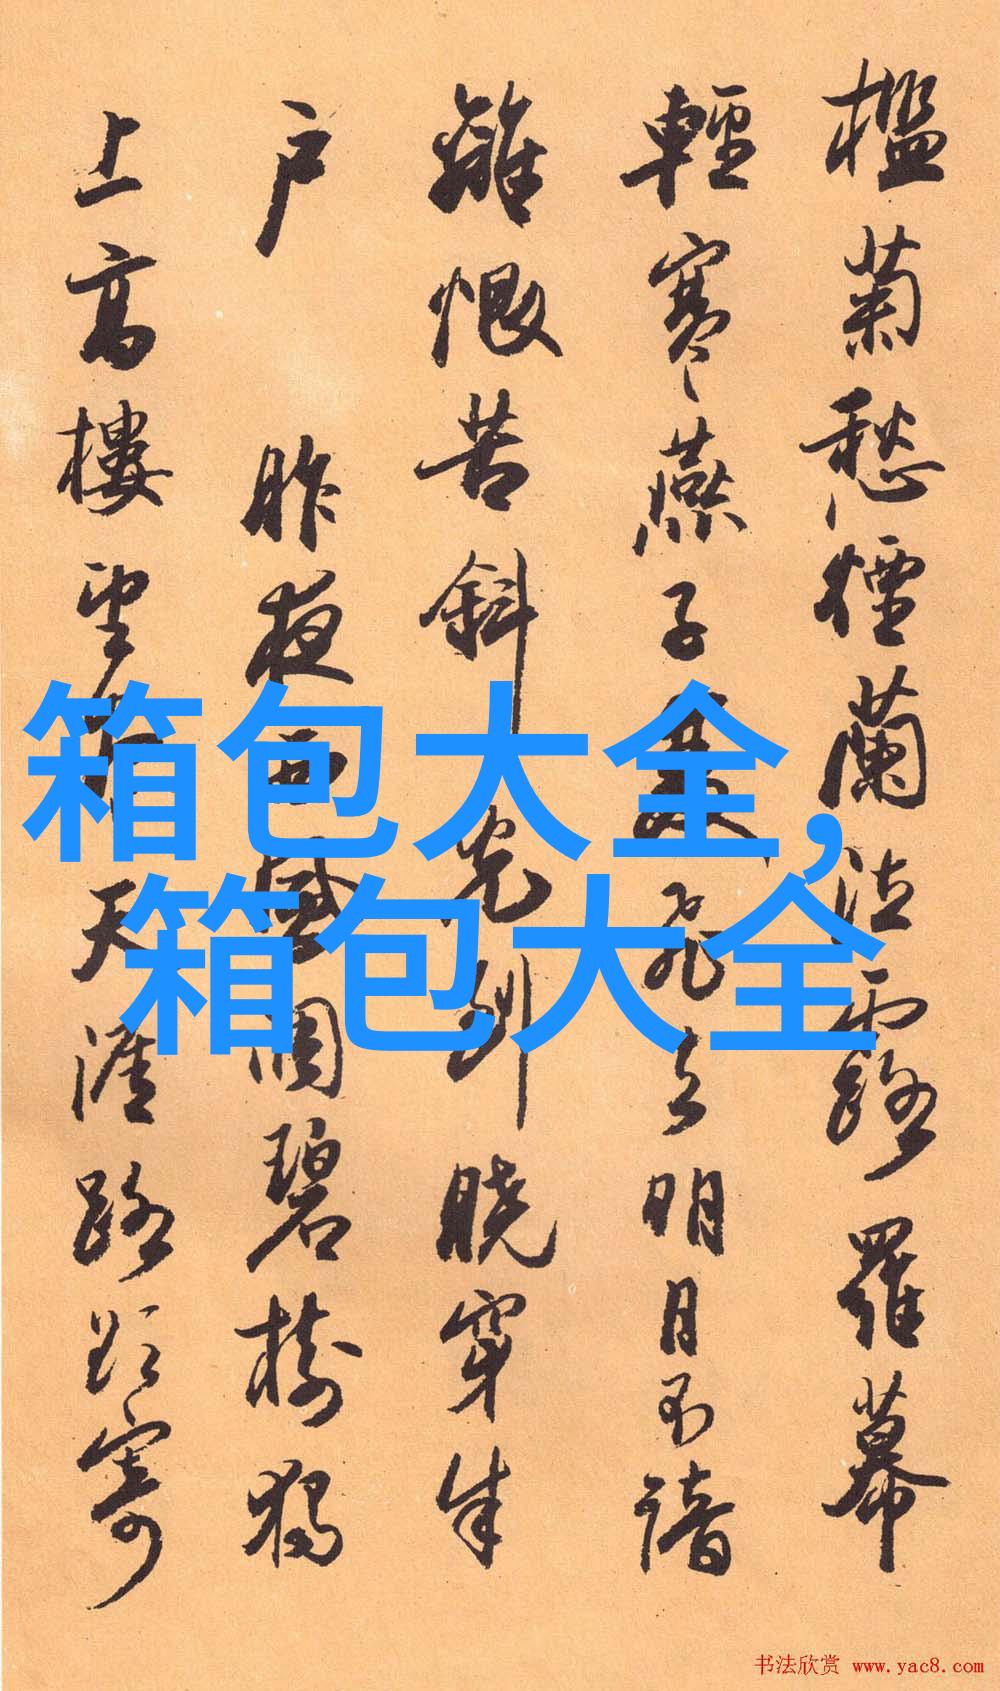 檻菊愁煙蘭泣露羅幕
輕寒燕子雙飛去明月不諳
離恨苦斜光到曉穿朱
户 昨夜西風凋碧樹獨
上高樓望盡天涯路欲寄
箱包大全,
箱包大全
书法欣赏 www.yac8.com